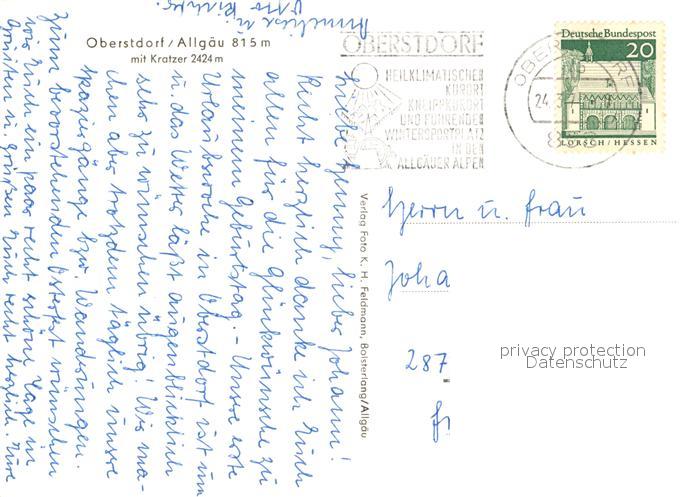 Oberstdorf/Allgäu 815 m
mit Kratzer 2424 m
OBERSTDORF
HEILKLIMATISCHER
KURORT
KNEIPPKURORT
UND FÜHRENDER
WINTERSPORTPLATZ
IN DEN
ALLGÄUER ALPEN
OBERSTDORF
24.3.
Deutsche Bundespost
20
LORSCH/HESSEN
Liebe Jenny, lieber Johann!
Recht herzlich danke ich Euch
allen für die Glückwünsche zu
meinem Geburtstag. – Unsere erste
Urlaubswoche in Oberstdorf ist um
u. das Wetter läßt augenblicklich
sehr zu wünschen übrig! Wir ma-
chen aber trotzdem täglich unsere
Spaziergänge bzw. Wanderungen.
Zum bevorstehenden Osterfest wünschen
wir Euch ein paar recht schöne Tage im
u. grüßen Euch recht herzlich. Eure
Anneliese u.
Otto
Verlag Foto K. H. Feldmann, Bolsterlang/Allgäu
Herrn u. Frau
Joha
287
privacy protection
Datenschutz